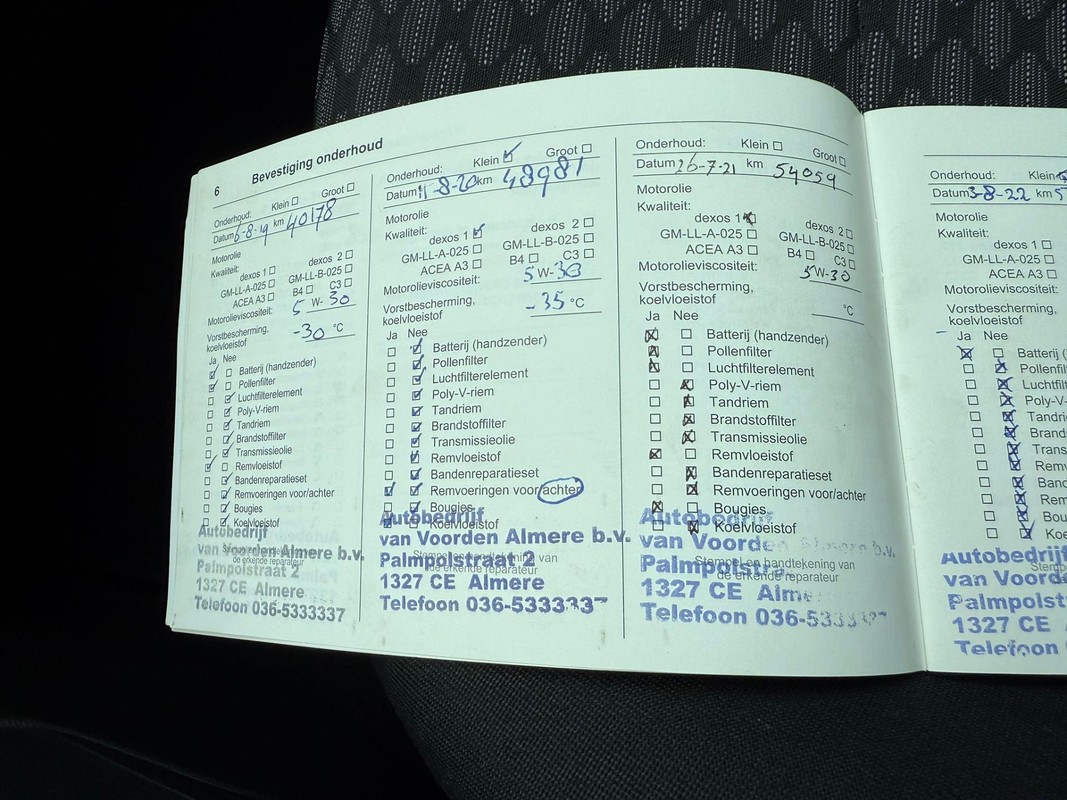 6 Bevestiging onderhoud
Onderhoud: Klein Groot
Datum 6-8-19 km 40178
Motorolie
Kwaliteit:
dexos 1 dexos 2
GM-LL-A-025 GM-LL-B-025
ACEA A3 B4 C3
Motorolieviscositeit: 5 W-30
Vorstbescherming,
koelvloeistof -30 °C
Ja Nee
Batterij (handzender)
Pollenfilter
Luchtfilterelement
Poly-V-riem
Tandriem
Brandstoffilter
Transmissieolie
Remvloeistof
Bandenreparatieset
Remvoeringen voor/achter
Bougies
Koelvloeistof
Stempel en handtekening van
de erkende reparateur
Autobedrijf
van Voorden Almere b.v.
Palmpolstraat 2
1327 CE Almere
Telefoon 036-5333337
Onderhoud: Klein Groot
Datum 11-8-20 km 48981
Motorolie
Kwaliteit:
dexos 1 dexos 2
GM-LL-A-025 GM-LL-B-025
ACEA A3 B4 C3
Motorolieviscositeit: 5 W-30
Vorstbescherming,
koelvloeistof -35 °C
Ja Nee
Batterij (handzender)
Pollenfilter
Luchtfilterelement
Poly-V-riem
Tandriem
Brandstoffilter
Transmissieolie
Remvloeistof
Bandenreparatieset
Remvoeringen voor/achter
Bougies
Koelvloeistof
Stempel en handtekening van
de erkende reparateur
Autobedrijf
van Voorden Almere b.v.
Palmpolstraat 2
1327 CE Almere
Telefoon 036-5333337
Onderhoud: Klein Groot
Datum 26-7-21 km 54059
Motorolie
Kwaliteit:
dexos 1 dexos 2
GM-LL-A-025 GM-LL-B-025
ACEA A3 B4 C3
Motorolieviscositeit: 5W-30
Vorstbescherming,
koelvloeistof °C
Ja Nee
Batterij (handzender)
Pollenfilter
Luchtfilterelement
Poly-V-riem
Tandriem
Brandstoffilter
Transmissieolie
Remvloeistof
Bandenreparatieset
Remvoeringen voor/achter
Bougies
Koelvloeistof
Stempel en handtekening van
de erkende reparateur
Autobedrijf
van Voorden Almere b.v.
Palmpolstra
1327 CE Alme
Telefoon 036-5333
Onderhoud: Klein
Datum 3-8-22 km 5
Motorolie
Kwaliteit:
dexos 1
GM-LL-A-025
ACEA A3
Motorolieviscositeit:
Vorstbescherming,
koelvloeistof
Ja Nee
Batterij (
Pollenfil
Luchtfil
Poly-V-
Tandri
Brand
Trans
Remv
Band
Rem
Bou
Koe
Stemp
Autobedrijf
van Voord
Palmpolst
1327 CE
Telefoon